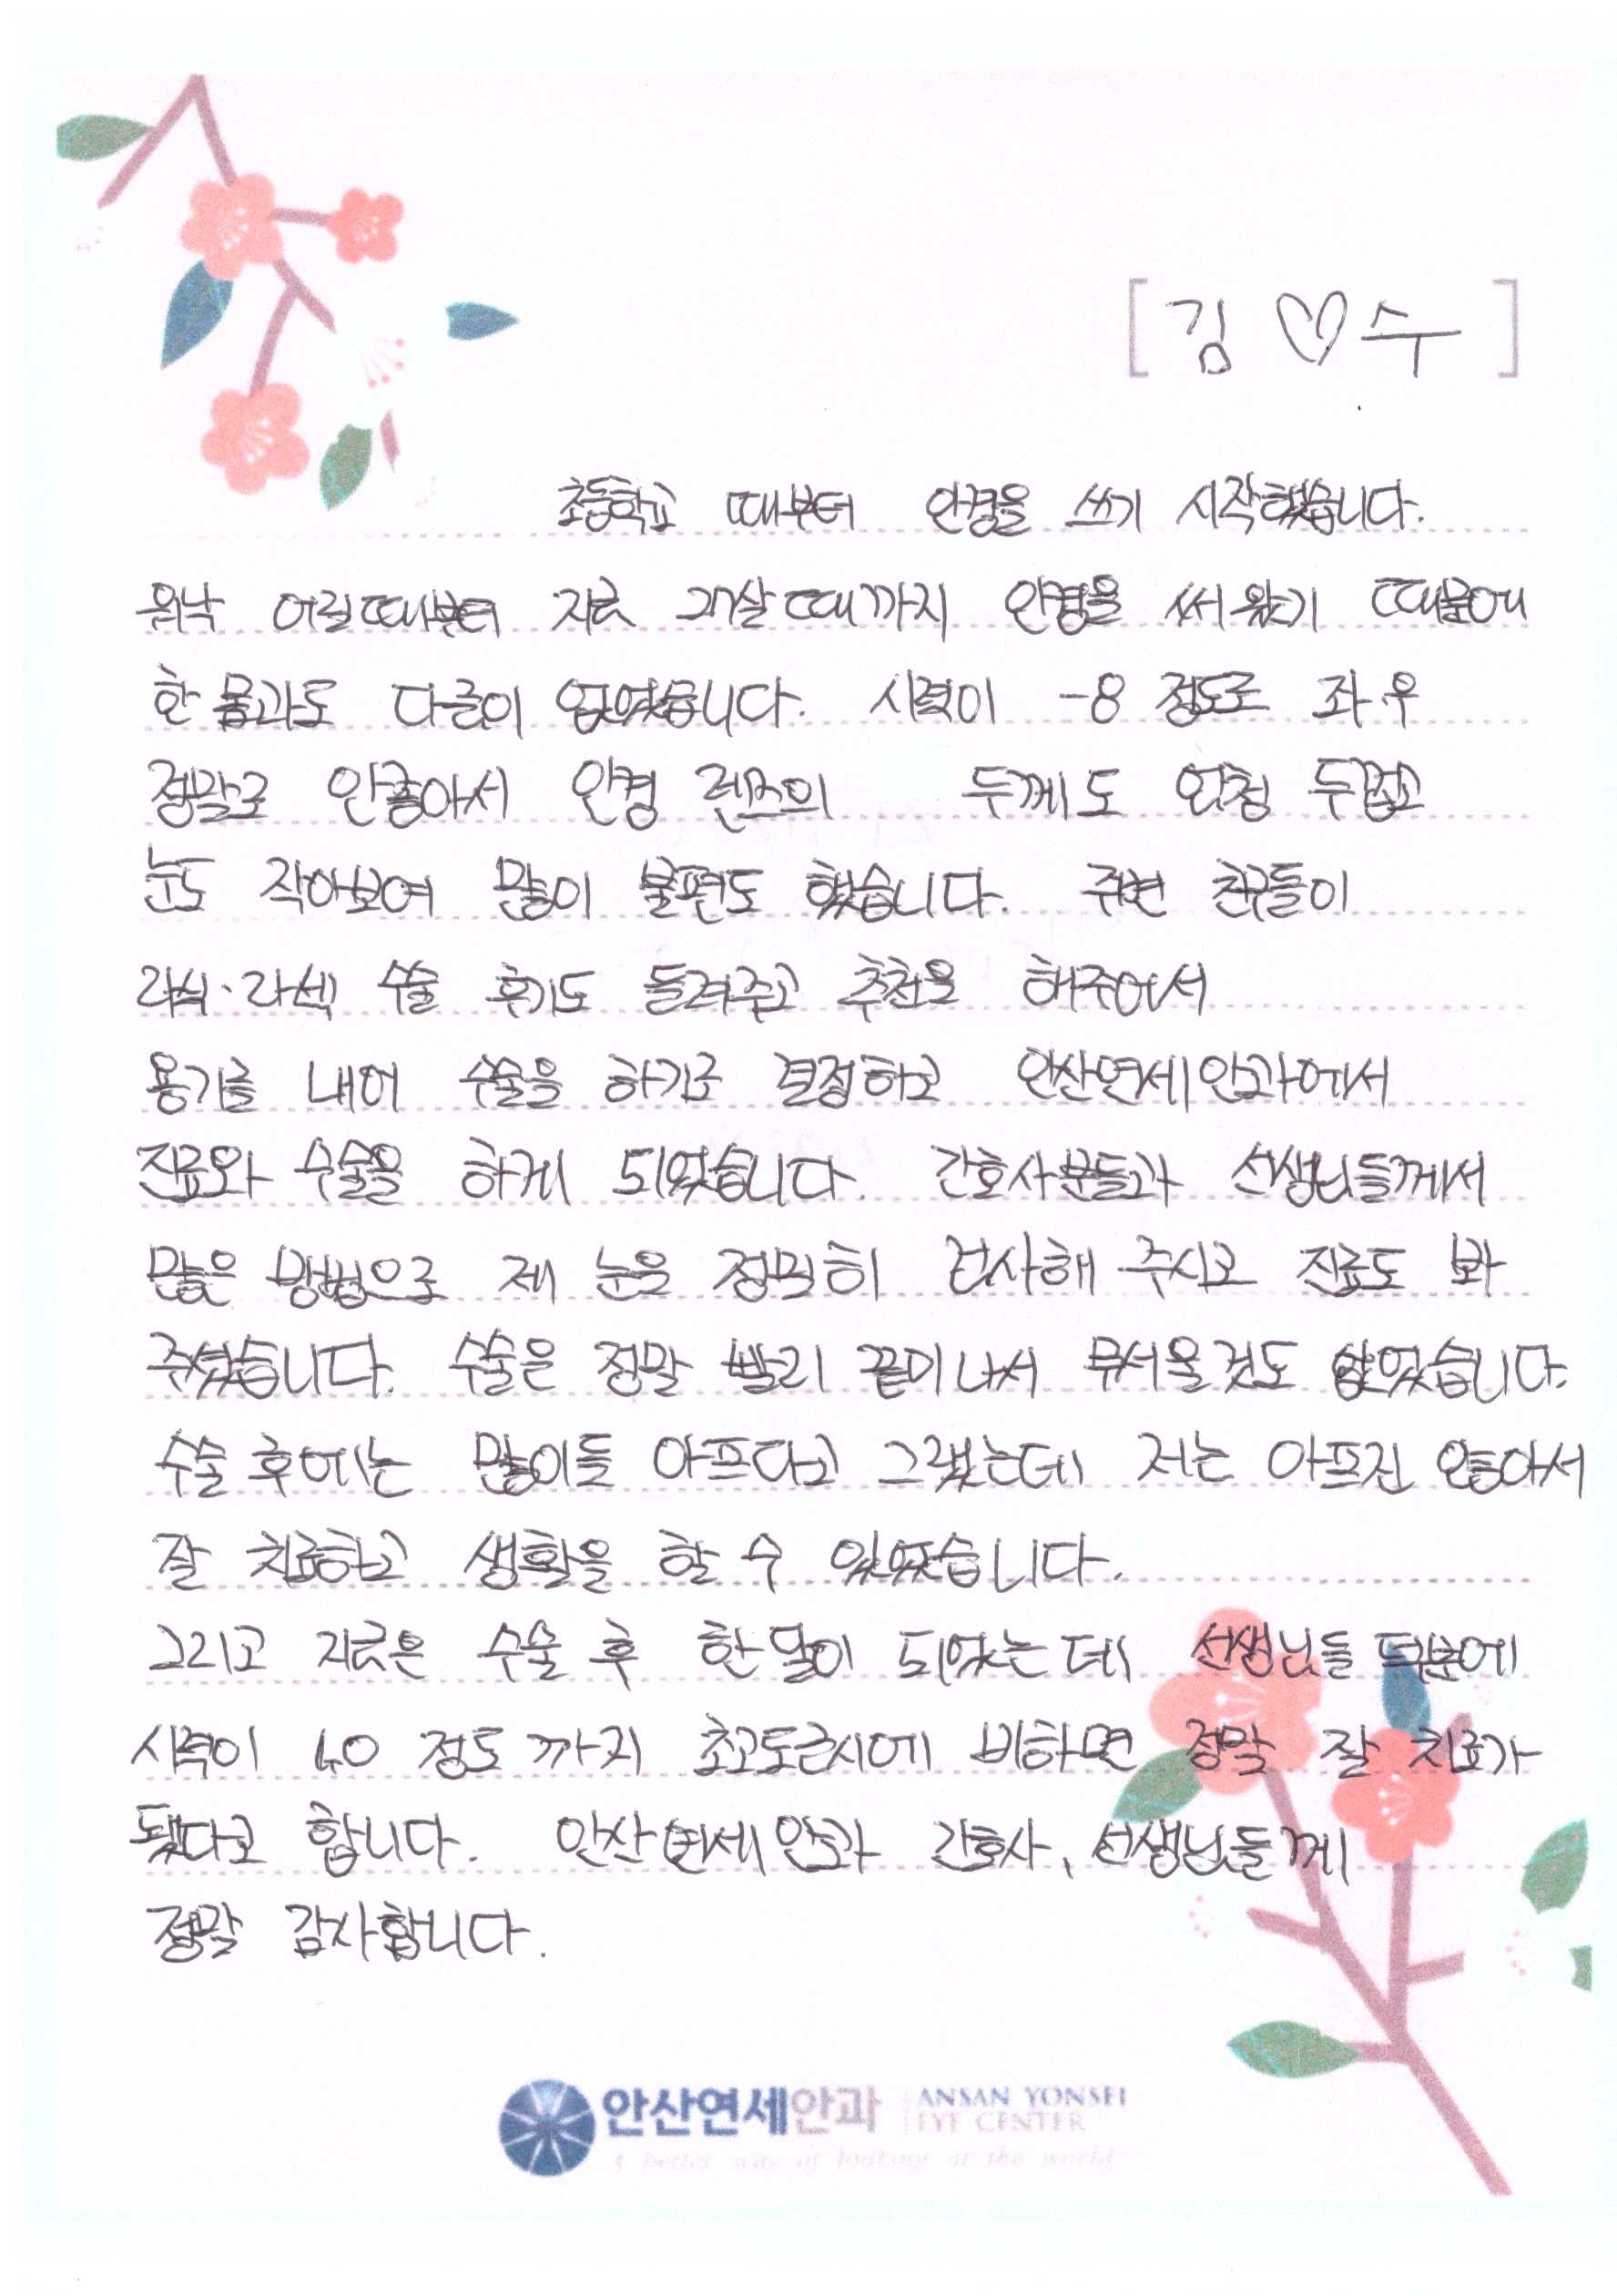 [ 김 ♡ 수 ]
초등학교 때부터 안경을 쓰기 시작했습니다.
워낙 어릴때부터 지금 27살때까지 안경을 써왔기 때문에
한몸과도 다름이 없었습니다. 시력이 -8 정도로 좌우
정말로 안좋아서 안경 렌즈의 두께도 엄청 두껍고
눈도 작아보여 많이 불편도 했습니다. 주변 친구들이
라식·라섹 수술 후기도 들려주고 추천을 해주어서
용기를 내어 수술을 하기로 결정하고 안산연세안과에서
진료와 수술을 하게 되었습니다. 간호사분들과 선생님들께서
많은 방법으로 제 눈을 정밀히 검사해 주시고 진료도 봐
주셨습니다. 수술은 정말 빨리 끝이나서 무서울것도 않았습니다.
수술 후에는 많이들 아프다고 그랬는데 저는 아프진 않아서
잘 치료하고 생활을 할 수 있었습니다.
그리고 지금은 수술 후 한달이 되었는데 선생님들 덕분에
시력이 정도까지 초고도근시에 비하면 정말 잘 치료가
됐다고 합니다. 안산연세안과 간호사, 선생님들께
정말 감사합니다.
안산연세안과 ANSAN YONSEI
EYE CENTER
A better way of looking at the world